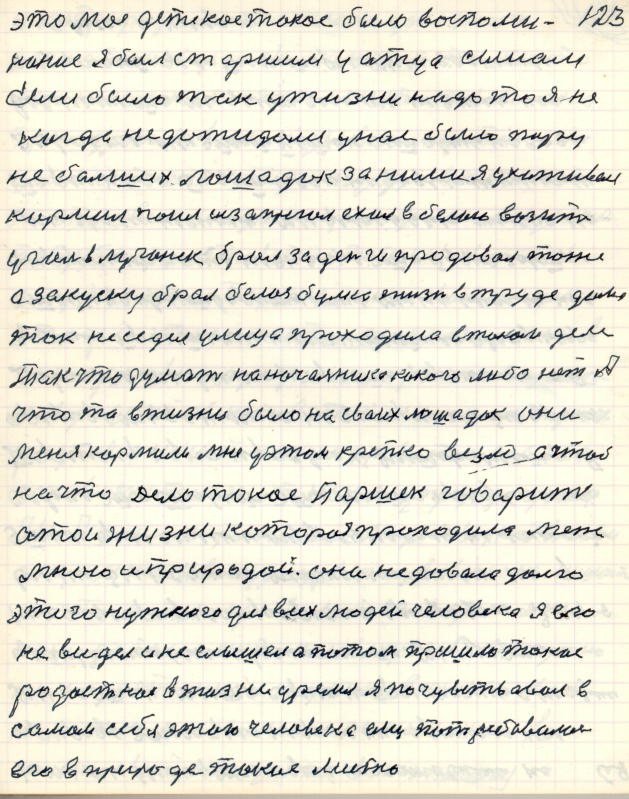 это мое детское такое было воспоми- 123
нание я был старшим у атца сынам
Если было так у жизни надо то я не
когда не дожидали у нас было пару
не балших лошадок за ними я ухаживал
кормил поил и запрегал ехал в
угал в луганск брал за денги продовал тоже
а закуску брал белаю булку жизн в труде дама
так не седел улица проходила в таком деле
Так что думат на начаяника какого либо нет
что та в жизни было на сваих лошадок они
меня кормили мне у этом крепко везло а чтоб
на что дело такое Паршек говарит
атой жизни которая проходила меж
мною и Природай. они не довала долго
этого нужного для всех людей человека я его
не видел и не слышел а потом пришло такое
родостное в жизни время я почувствавал в
самом себя этаго человека ему потребовалос
его в природе такое место